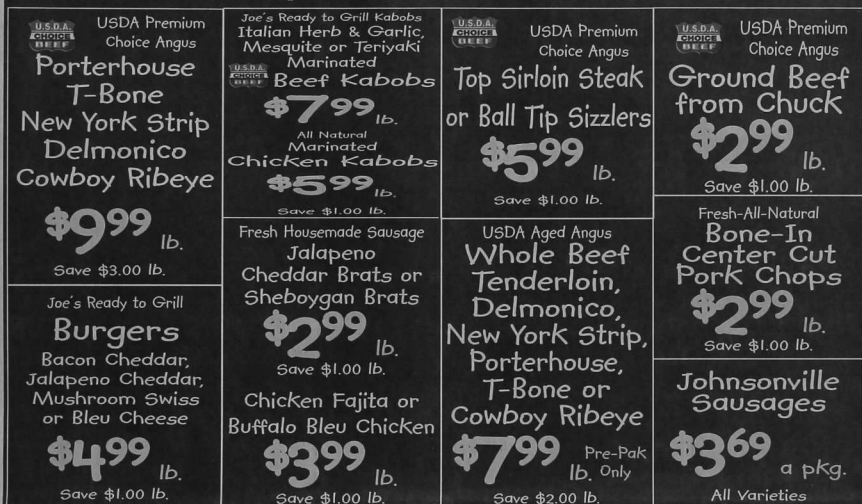 U.S.D.A.
CHOICE
BEEF
USDA Premium
Choice Angus
Porterhouse
T-Bone
New York Strip
Delmonico
Cowboy Ribeye
$9.99 lb.
Save $3.00 lb.
Joe's Ready to Grill
Burgers
Bacon Cheddar,
Jalapeno Cheddar,
Mushroom Swiss
or Bleu Cheese
$4.99 lb.
Save $1.00 lb.
Joe's Ready to Grill Kabobs
Italian Herb & Garlic,
Mesquite or Teriyaki
Marinated
U.S.D.A.
CHOICE
BEEF
Beef Kabobs
$7.99 lb.
All Natural
Marinated
Chicken Kabobs
$5.99 lb.
Save $1.00 lb.
Fresh Housemade Sausage
Jalapeno
Cheddar Brats or
Sheboygan Brats
$2.99 lb.
Save $1.00 lb.
Chicken Fajita or
Buffalo Bleu Chicken
$3.99 lb.
Save $1.00 lb.
U.S.D.A.
CHOICE
BEEF
USDA Premium
Choice Angus
Top Sirloin Steak
or Ball Tip Sizzlers
$5.99 lb.
Save $1.00 lb.
USDA Aged Angus
Whole Beef
Tenderloin,
Delmonico,
New York Strip,
Porterhouse,
T-Bone or
Cowboy Ribeye
$7.99 lb.
Pre-Pak
Only
Save $2.00 lb.
U.S.D.A.
CHOICE
BEEF
USDA Premium
Choice Angus
Ground Beef
from Chuck
$2.99 lb.
Save $1.00 lb.
Fresh-All-Natural
Bone-In
Center Cut
Pork Chops
$2.99 lb.
Save $1.00 lb.
Johnsonville
Sausages
$3.69 a pkg.
All Varieties